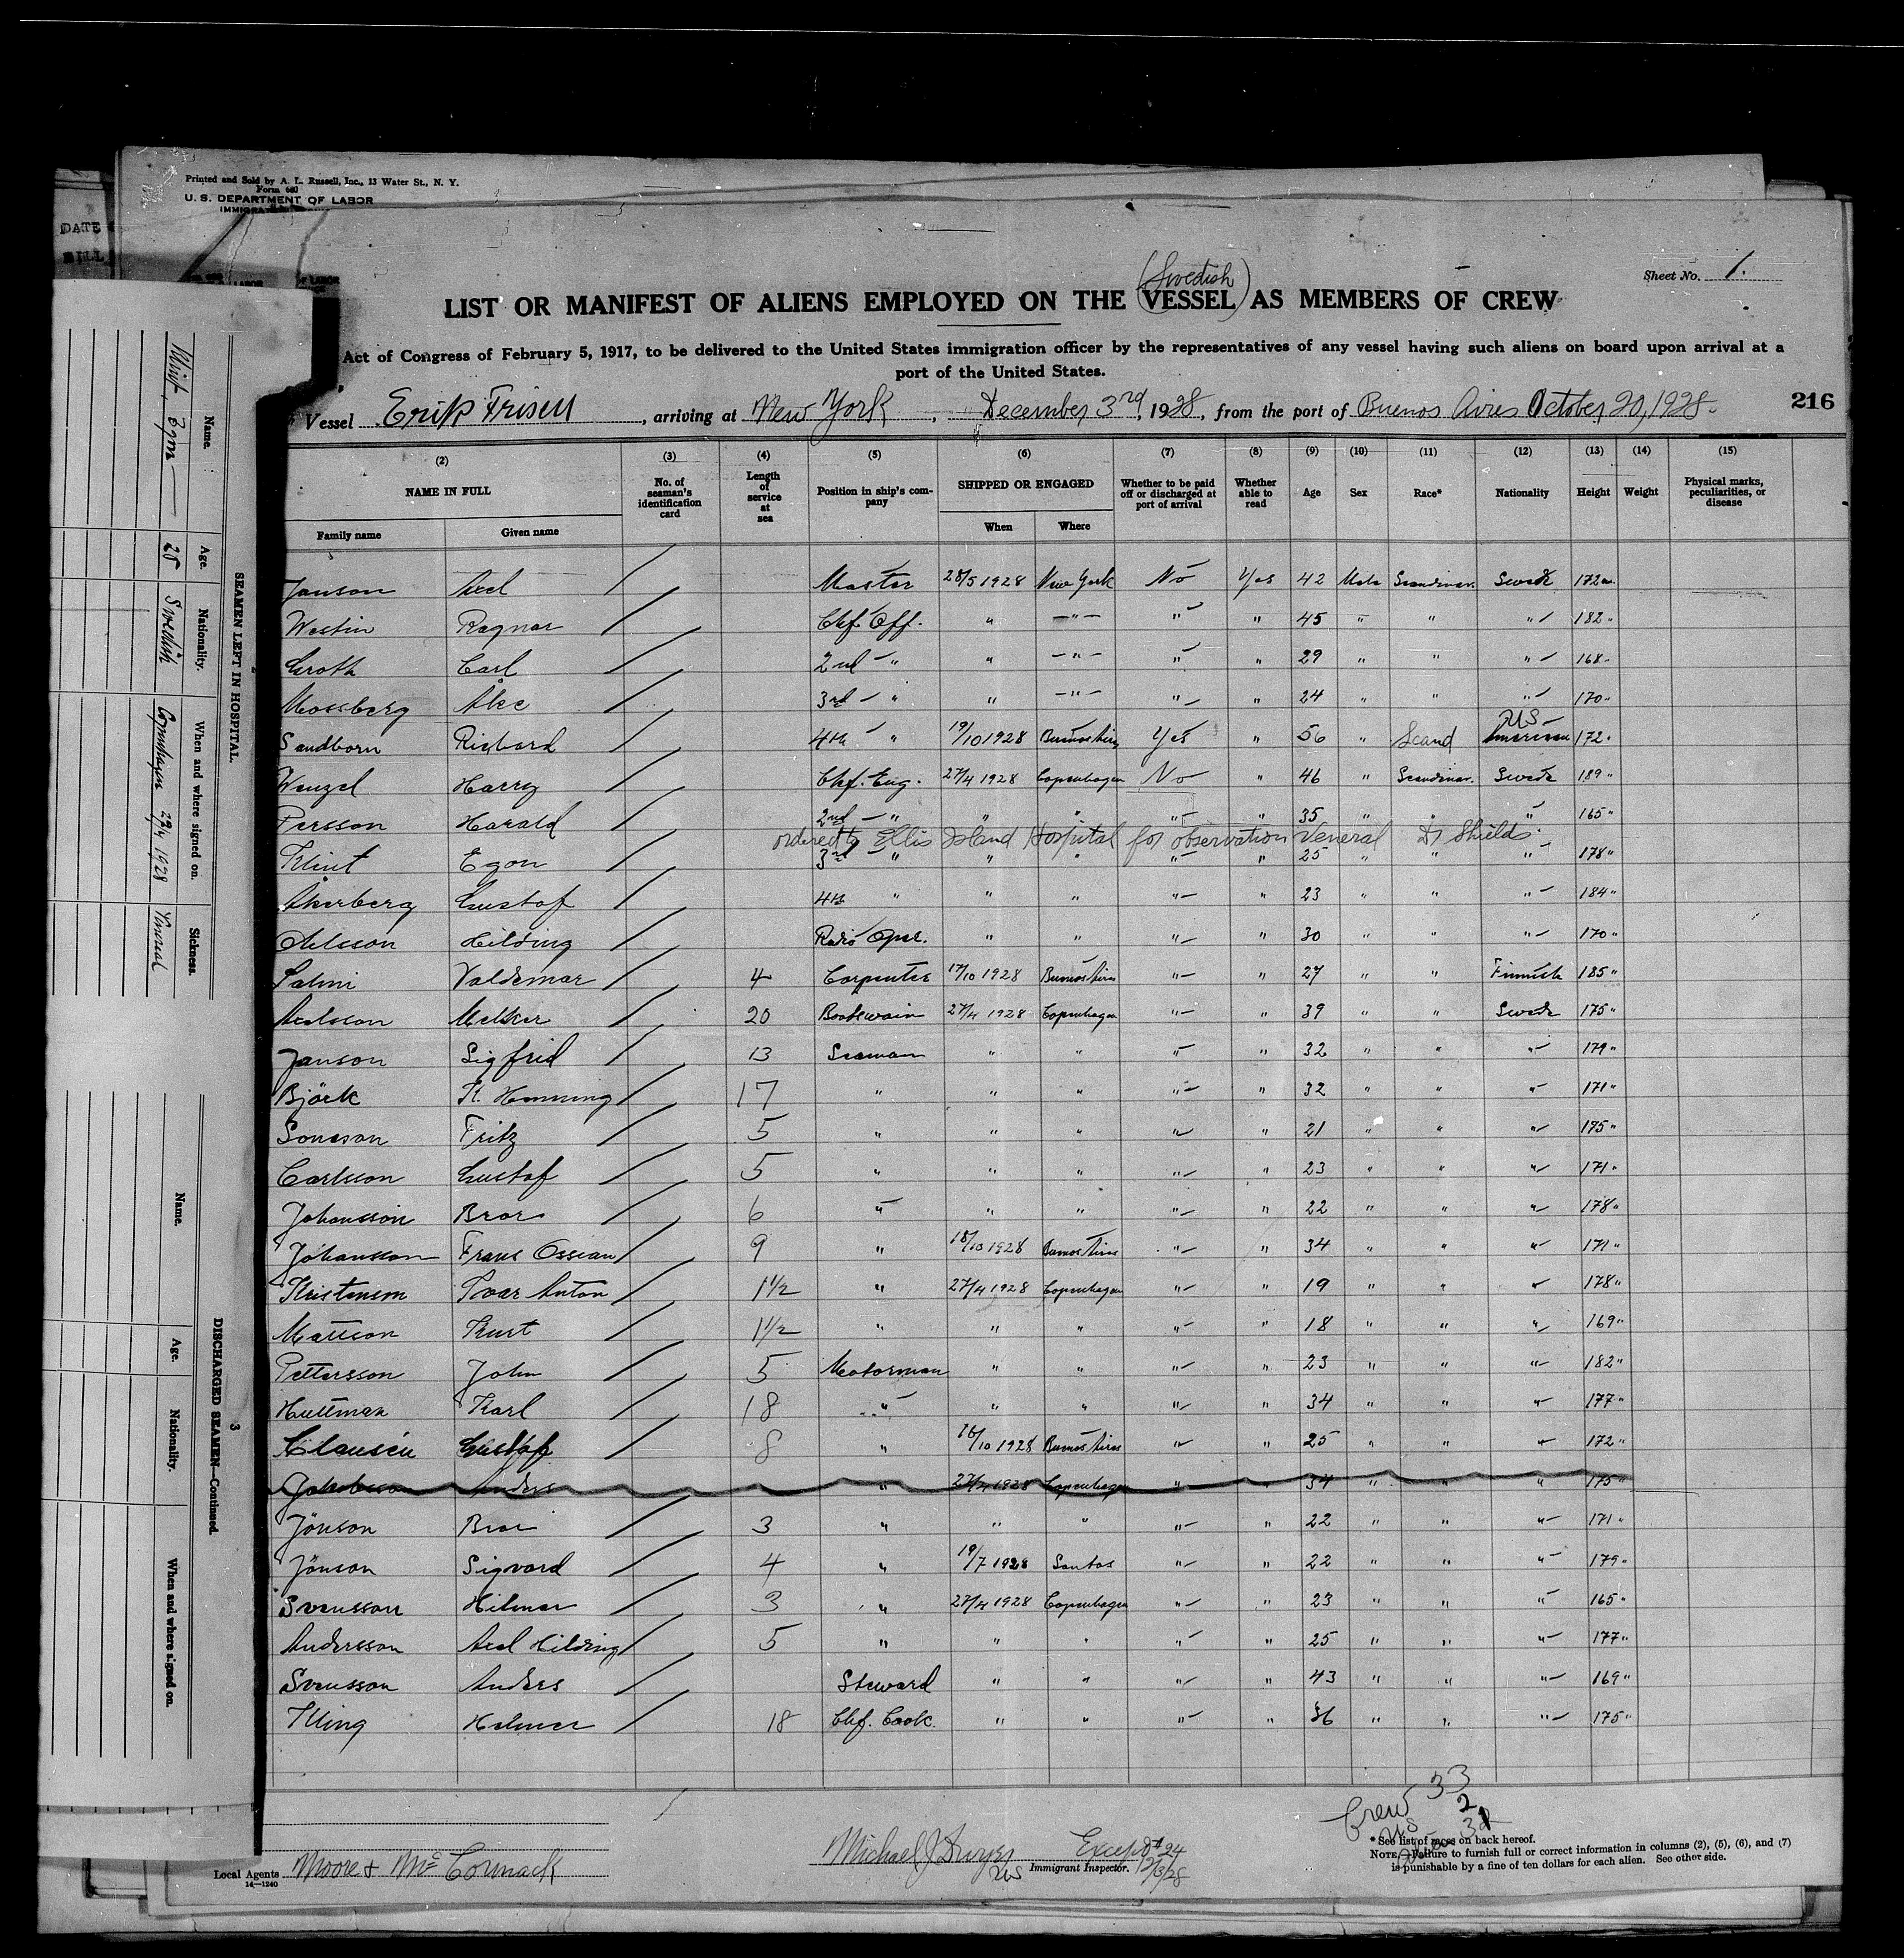 Printed and Sold by A. L. Russell, Inc., 13 Water St., N. Y.
Form 680
U. S. DEPARTMENT OF LABOR
DATE
Sheet No. 1.
(Swedish)
LIST OR MANIFEST OF ALIENS EMPLOYED ON THE VESSEL AS MEMBERS OF CREW
Act of Congress of February 5, 1917, to be delivered to the United States immigration officer by the representatives of any vessel having such aliens on board upon arrival at a
port of the United States.
Vessel Erik Frisell, arriving at New York, December 3rd, 1928, from the port of Buenos Aires October 20, 1928.
216
(2) (3) (4) (5) (6) (7) (8) (9) (10) (11) (12) (13) (14) (15)
NAME IN FULL No. of seaman's identification card Length of service at sea Position in ship's company SHIPPED OR ENGAGED Whether to be paid off or discharged at port of arrival Whether able to read Age Sex Race* Nationality Height Weight Physical marks, peculiarities, or disease
Family name Given name When Where
Janson Axel Master 28/5 1928 New York No Yes 42 Male Scandinav. Swede 172
Westin Ragnar Chf. Off. " —"— " " 45 " " " 182
Groth Carl 2nd " " —"— " " 29 " " " 168
Mossberg Åke 3rd " " —"— " " 24 " " " 170
US
Sandborn Richard 4th " 19/10 1928 Buenos Aires Yes " 56 " Scand American 172
Wenzel Harry Chf. Eng. 27/4 1928 Copenhagen No " 46 " Scandinav. Swede 189 "
Persson Harald 2nd " " " " " 35 " " " 165 "
ordered to Ellis Island Hospital for observation Veneral Dr Shields.
Klint Egon 3rd " " " " " 25 " " " 178 "
Åkerberg Gustaf 4th " " " " " 23 " " " 184 "
Hilding Radio Oper. " " " " 30 " " " 170 "
Salmi Valdemar 4 Carpenter 17/10 1928 Buenos Aires " " 27 " " Finnish 185 "
Axelsson Melker 20 Boatswain 27/4 1928 Copenhagen " " 39 " " Swede 175 "
Janson Sigfrid 13 Seaman " " " " 32 " " " 179 "
Björk K. Henning 17 " " " " " 32 " " " 171 "
Fritz 5 " " " " " 21 " " " 175 "
Carlsson Gustaf 5 " " " " " 23 " " " 171 "
Johansson Bror 6 " " " " " 22 " " " 178 "
Johansson Frans Ossian 9 " 18/10 1928 Buenos Aires " " 34 " " " 171 "
Kristenson Ivar Anton 1 1/2 " 27/4 1928 Copenhagen " " 19 " " " 178 "
Mattson Kurt 1 1/2 " " " " " 18 " " " 169 "
Pettersson John 5 Motorman " " " " 23 " " " 182 "
Huttman Karl 18 " " " " " 34 " " " 177 "
Clausén Gustaf 8 " 16/10 1928 Buenos Aires " " 25 " " " 172 "
Jakobsson Anders " 27/4 1928 Copenhagen " 34 " " " 175 "
Jönson Bror 3 " " " " " 22 " " " 171 "
Jönson Sigvard 4 " 19/7 1928 Santos " " 22 " " " 179 "
Svensson Hilmer 3 " 27/4 1928 Copenhagen " " 23 " " " 165 "
Andersson Axel Hilding 5 " " " " " 25 " " " 177 "
Svensson Anders Steward " " " " 43 " " " 169 "
Kling Helmer 18 Chf. Cook. " " " " 36 " " " 175 "
Crew 33
2
US
Local Agents Moore & McCormack
14—1240
Michael J Dwyer
Immigrant Inspector.
Except 24
12/3/28
*See list of races on back hereof.
NOTE.—Failure to furnish full or correct information in columns (2), (5), (6), and (7)
is punishable by a fine of ten dollars for each alien. See other side.
SEAMEN LEFT IN HOSPITAL.
Name. Age. Nationality. When and where signed on. Sickness.
Klint, Egon 25 Swedish Copenhagen 27/4 1928 Veneral
3
DISCHARGED SEAMEN—Continued.
Name. Age. Nationality. When and where signed on.